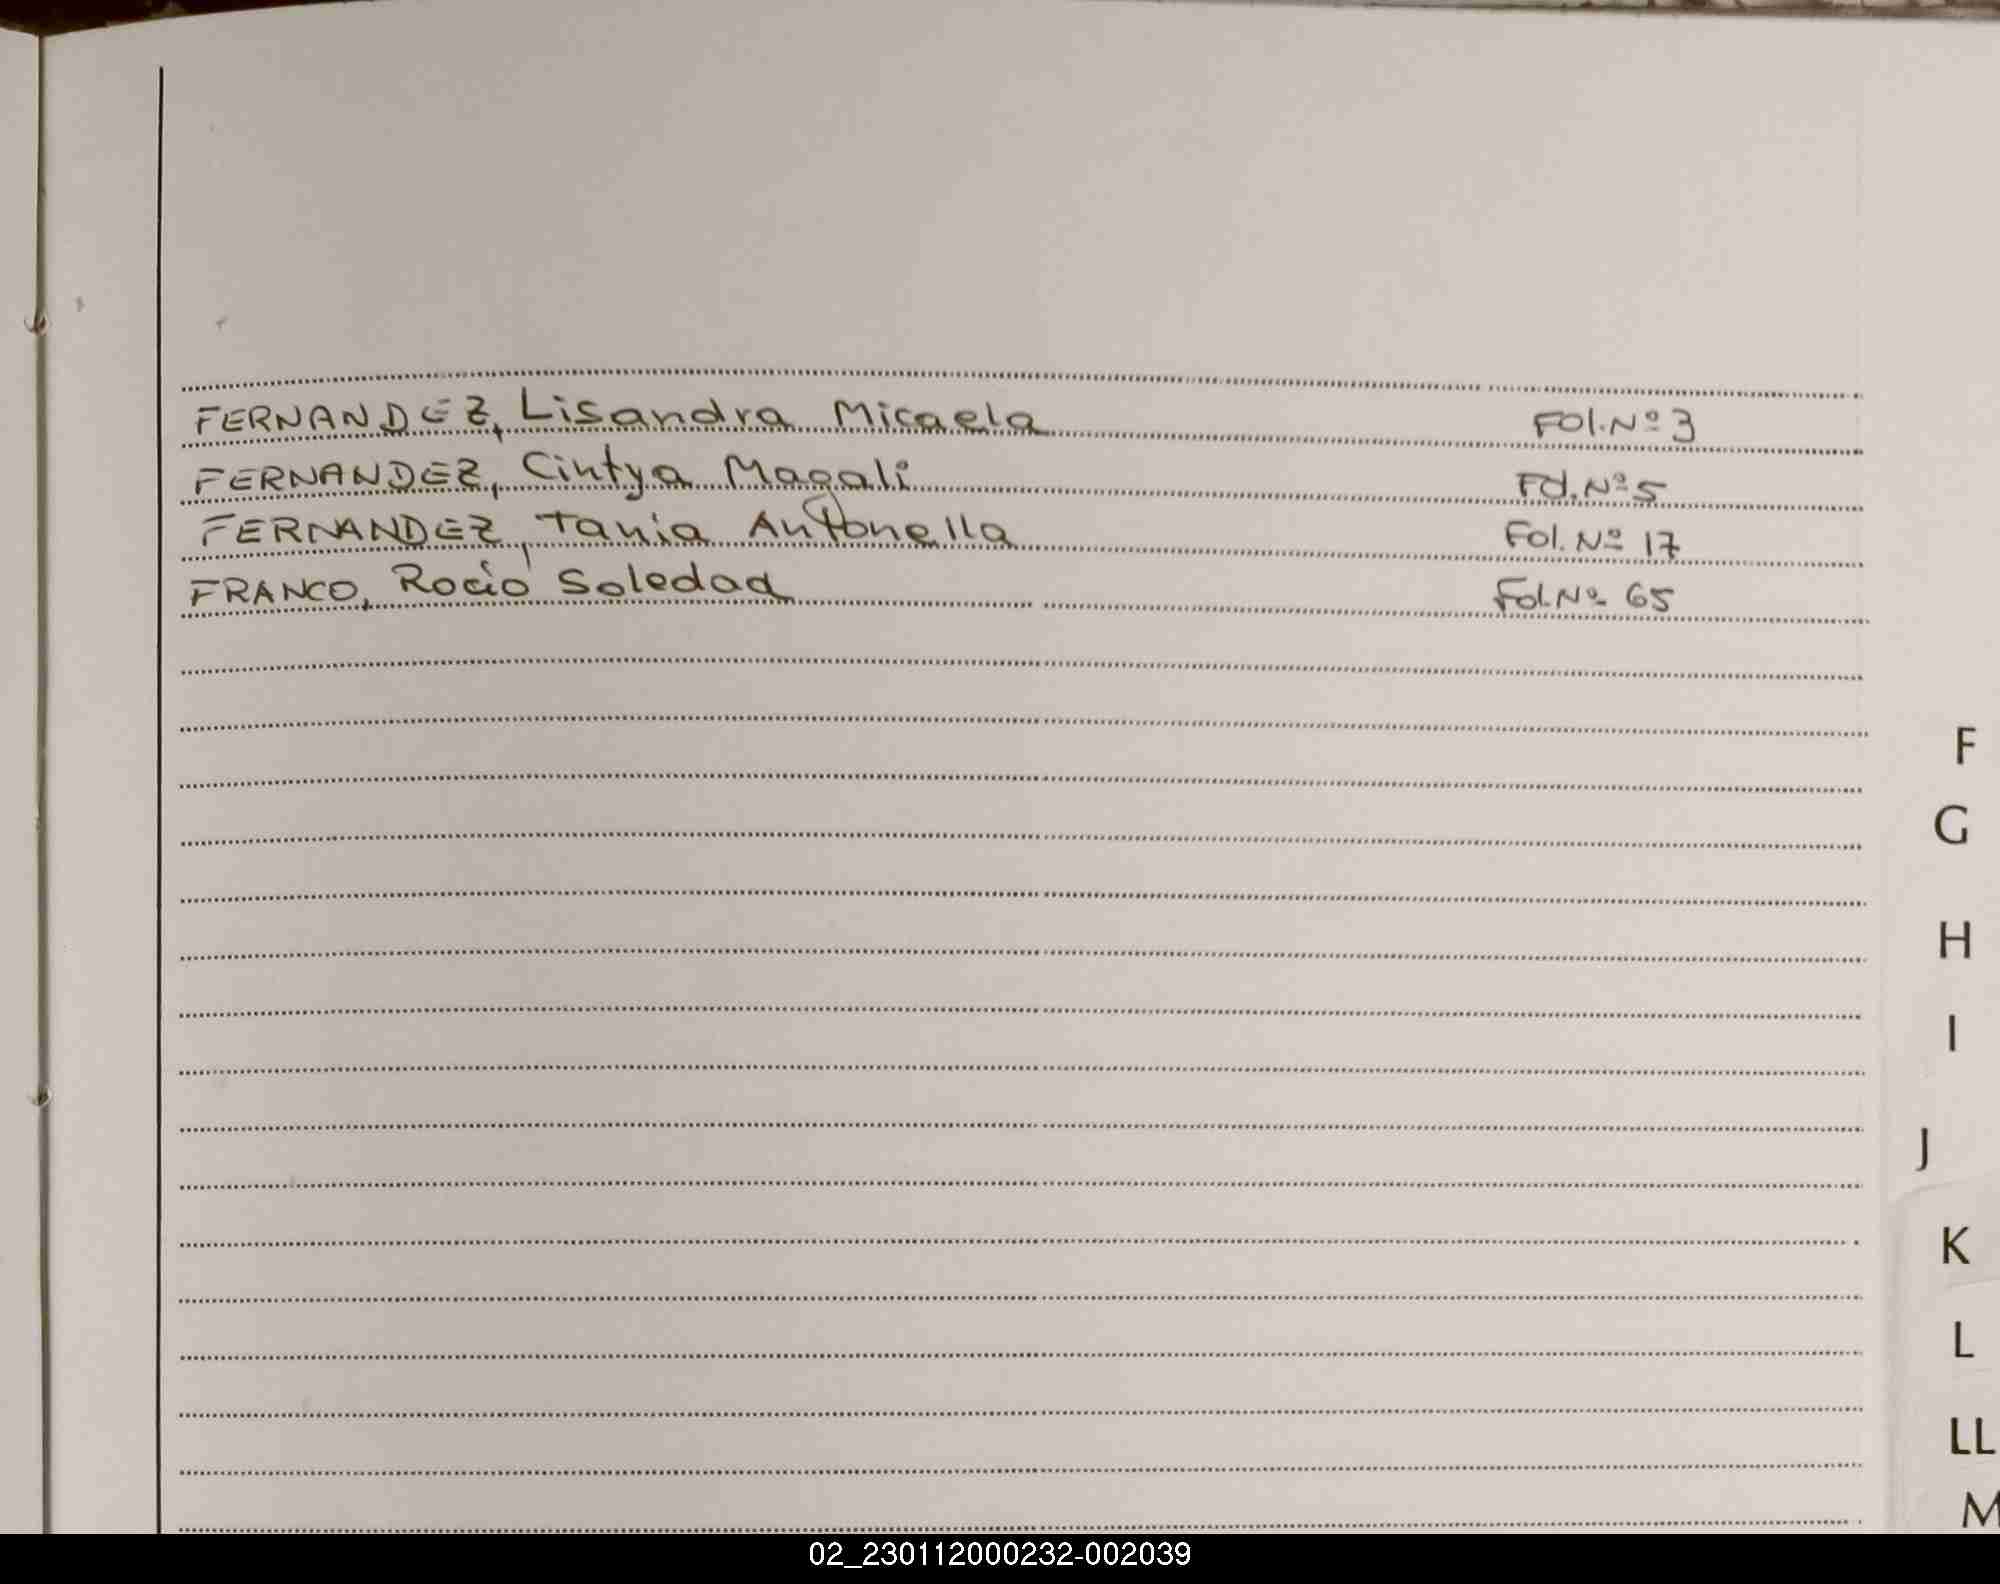 FERNANDEZ, Lisandra Micaela Fol. Nº 3
FERNANDEZ, Cintya Magali Fol. Nº 5
FERNANDEZ, Tania Antonella Fol. Nº 17
FRANCO, Rocio Soledad Fol. Nº 65
F
G
H
I
J
K
L
LL
M
02_230112000232-002039